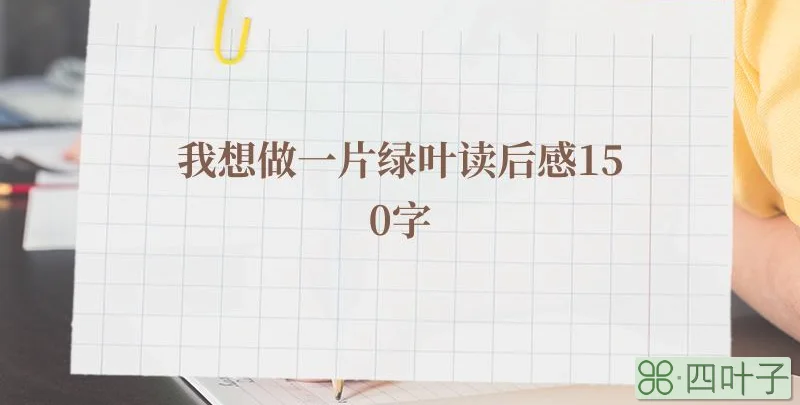 我想做一片绿叶读后感15
0字
四叶子